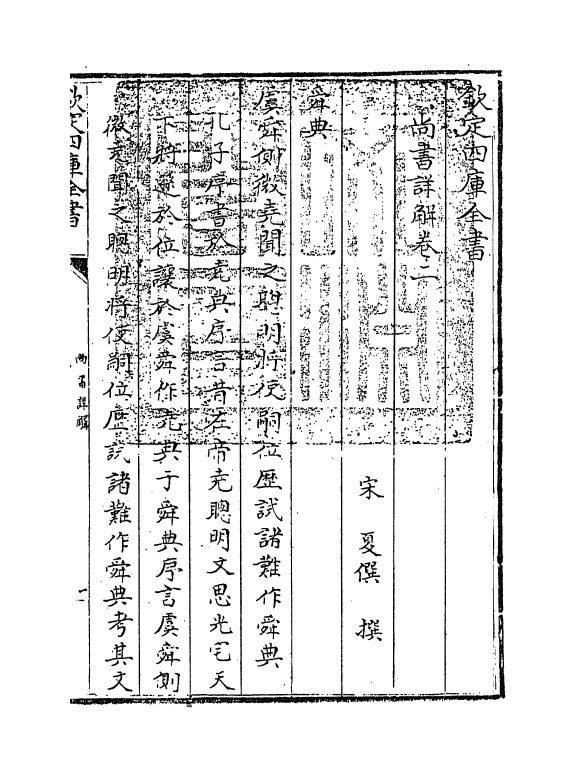 欽定四庫全書
尚書詳解卷二
宋 夏僎 撰
舜典
虞舜側微堯聞之聰明將使嗣位歴試諸難作舜典
孔子序書於堯典序言昔在帝堯聰明文思光宅天
下將遜於位讓於虞舜作堯典于舜典序言虞舜側
微堯聞之聰明將使嗣位歴試諸難作舜典考其文
欽定四庫全書
尚書詳解
一